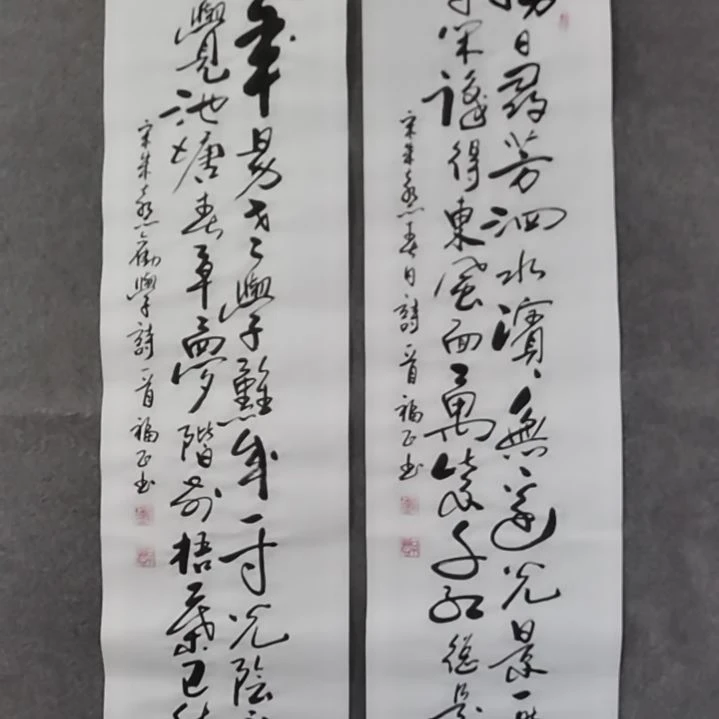 勝日尋芳泗水濱無邊光景一
閒識得東風面萬紫千紅總是
宋朱熹春日詩一首 福正书
年易老學難成一寸光陰
覺池塘春草夢階前梧葉已秋
宋朱熹勸學詩一首 福正书